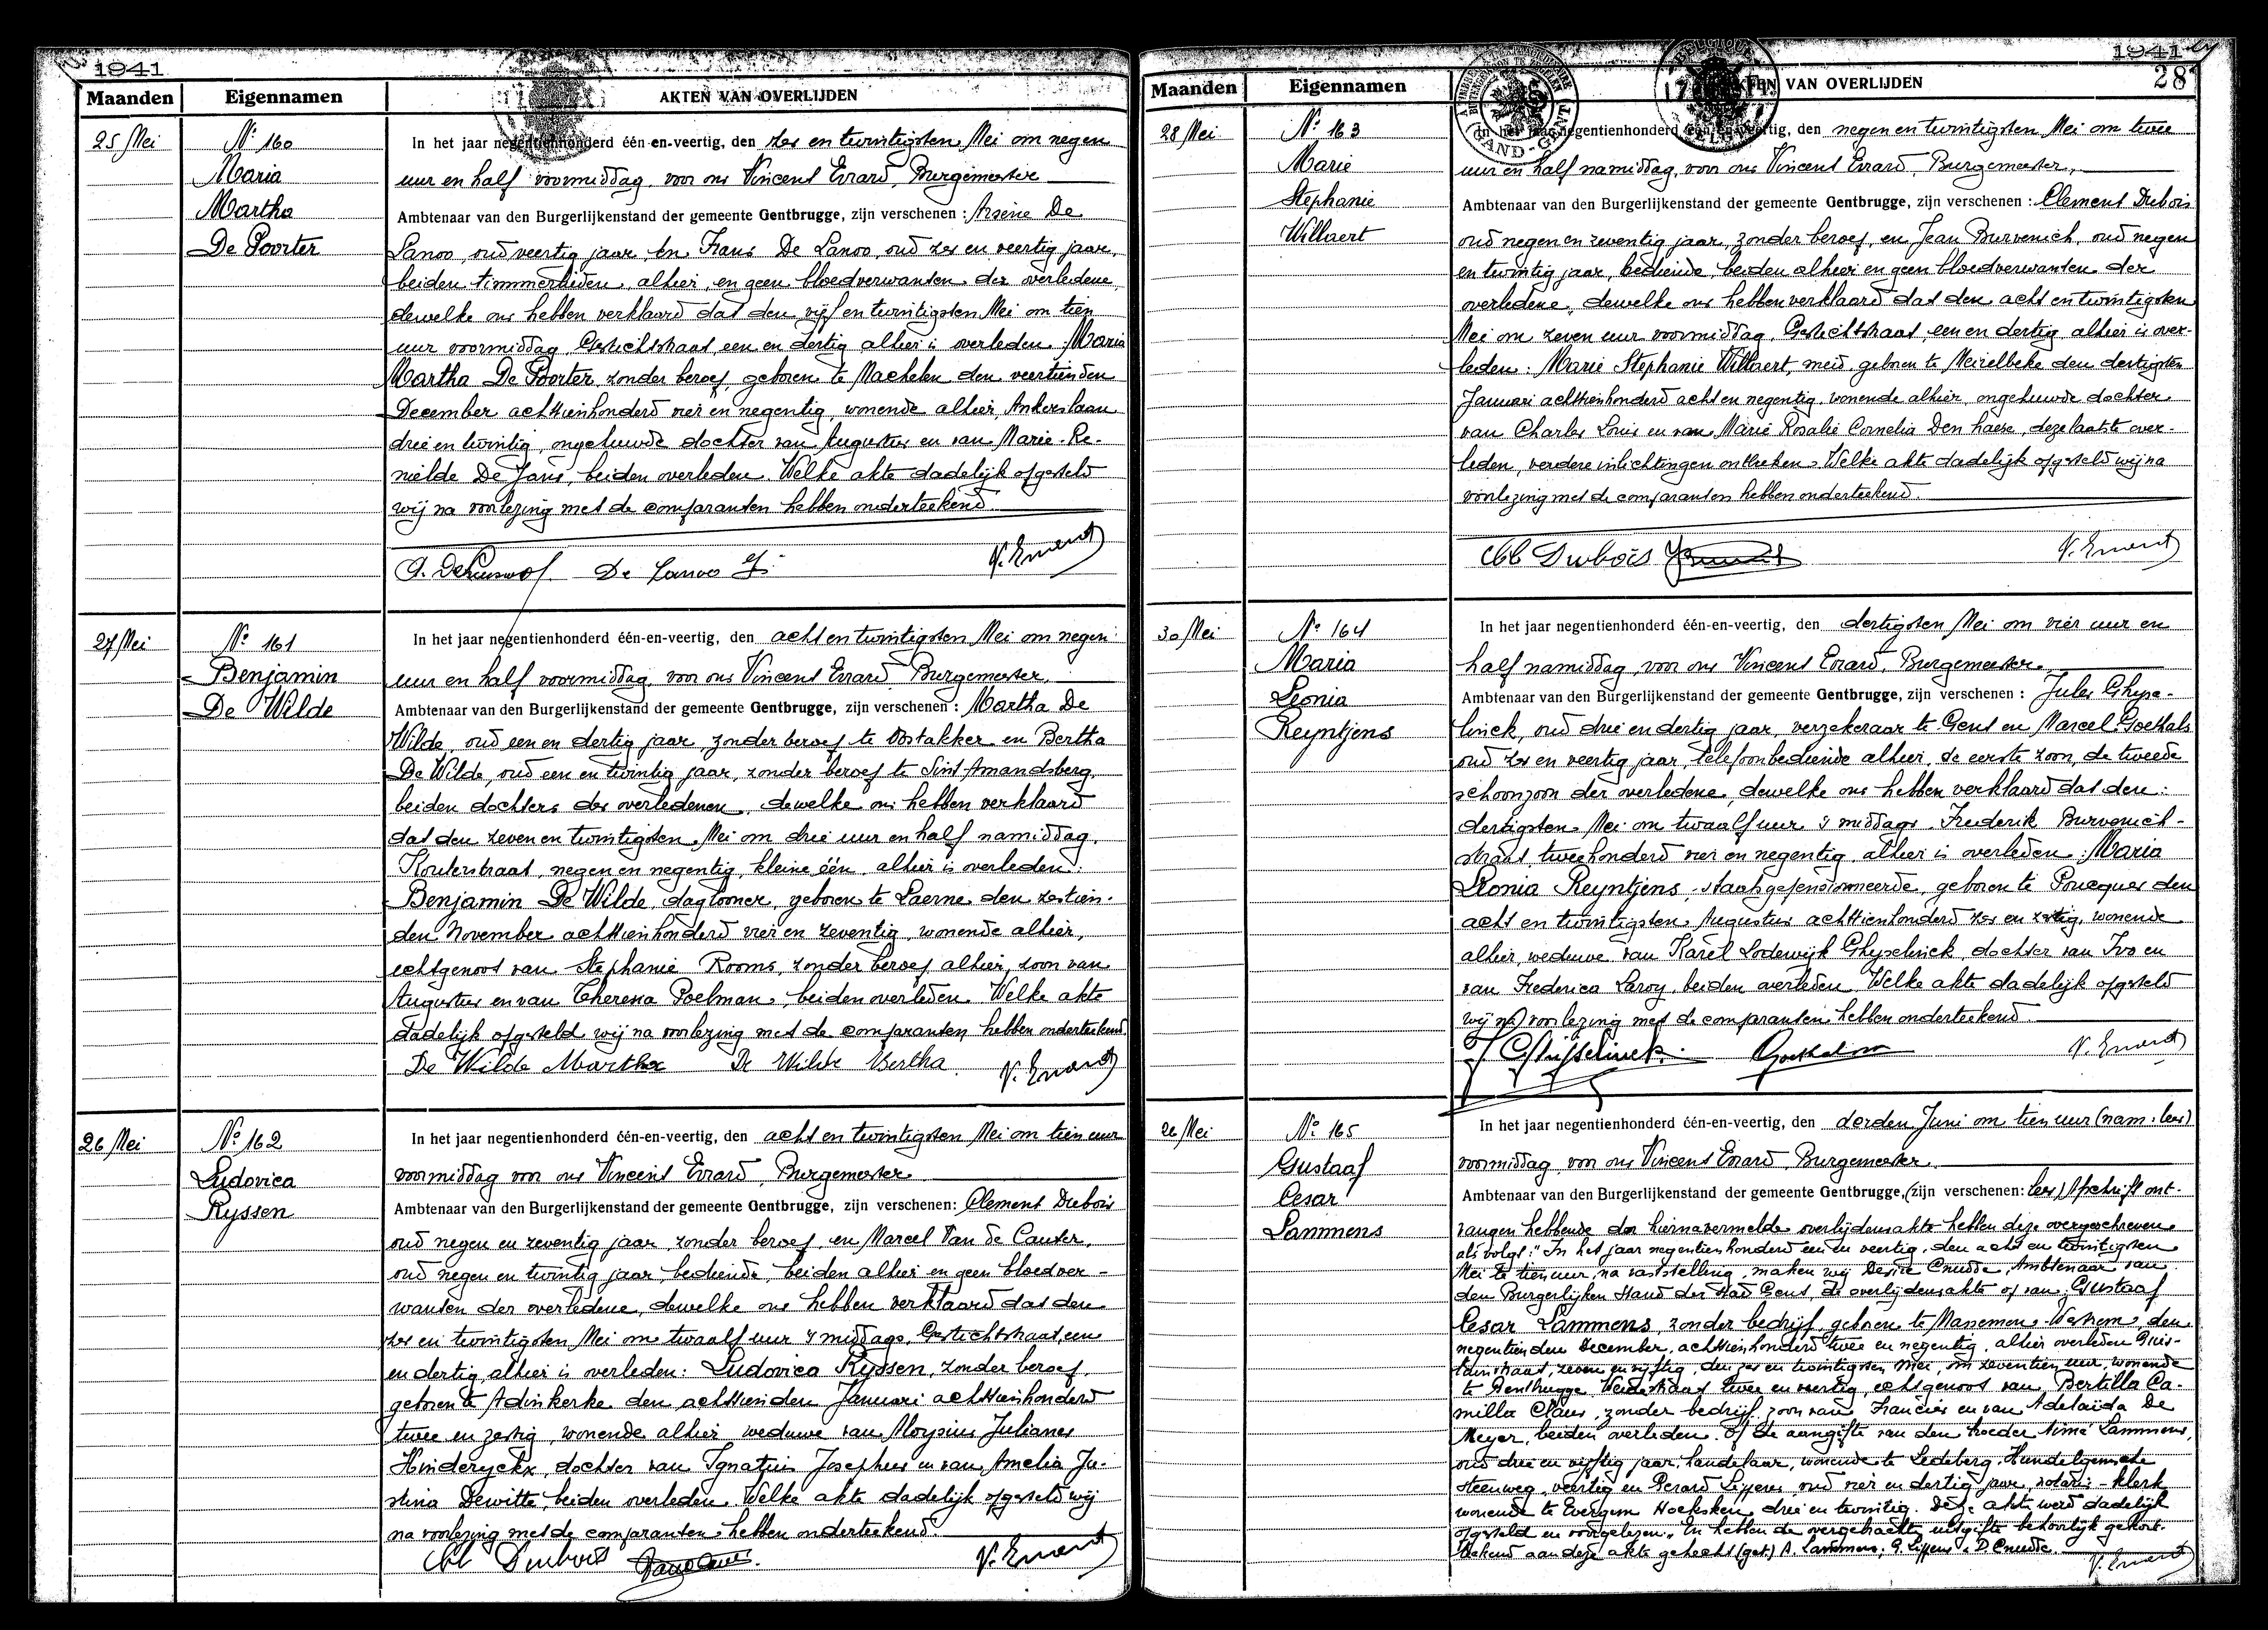 1941
Maanden
Eigennamen
AKTEN VAN OVERLIJDEN
25 Mei
N° 160
Maria
Martha
De Poorter
In het jaar negentienhonderd één-en-veertig, den zes en twintigsten Mei om negen
uur en half voormiddag, voor ons Vincent Evrard, Burgemeester
Ambtenaar van den Burgerlijkenstand der gemeente Gentbrugge, zijn verschenen : Arsène De
Lanoo, oud veertig jaar, en Frans De Lanoo, oud zes en veertig jaar,
beiden timmerlieden, alhier, en geen bloedverwanten der overledene,
dewelke ons hebben verklaard dat den vijf en twintigsten Mei om tien
uur voormiddag, Gestichtstraat, een en dertig alhier is overleden: Maria
Martha De Poorter, zonder beroep, geboren te Machelen den veertienden
December achttienhonderd vier en negentig, wonende alhier, Ankerslaan
drie en twintig, ongehuwde dochter van Augustus en van Marie-Re-
nielde De Jans, beiden overleden. Welke akte dadelijk opgesteld
wij na voorlezing met de comparanten hebben onderteekend.
De Lanoo F.
V. Evrard
27 Mei
N° 161
Benjamin
De Wilde
In het jaar negentienhonderd één-en-veertig, den acht en twintigsten Mei om negen
uur en half voormiddag, voor ons Vincent Evrard, Burgemeester,
Ambtenaar van den Burgerlijkenstand der gemeente Gentbrugge, zijn verschenen : Martha De
Wilde, oud een en dertig jaar, zonder beroep te Oostakker en Bertha
De Wilde, oud een en twintig jaar, zonder beroep te Sint Amandsberg,
beiden dochters des overledenen, dewelke ons hebben verklaard
dat den zeven en twintigsten Mei om drie uur en half namiddag,
Kouterstraat, negen en negentig, kleine één, alhier is overleden:
Benjamin De Wilde, daglooner, geboren te Laerne den zestien-
den November achttienhonderd vier en zeventig, wonende alhier,
echtgenoot van Stephanie Rooms, zonder beroep alhier, zoon van
Augustus en van Theresia Poelman, beiden overleden. Welke akte
dadelijk opgesteld wij na voorlezing met de comparanten hebben onderteekend.
De Wilde Martha De Wilde Bertha V. Evrard
26 Mei
N° 162
Ludovica
Ryssen
In het jaar negentienhonderd één-en-veertig, den acht en twintigsten Mei om tien uur
voormiddag voor ons Vincent Evrard, Burgemeester
Ambtenaar van den Burgerlijkenstand der gemeente Gentbrugge, zijn verschenen: Clement Dubois
oud negen en zeventig jaar, zonder beroep, en Marcel Van de Cauter,
oud negen en twintig jaar, bediende, beiden alhier en geen bloedver-
wanten der overledene, dewelke ons hebben verklaard dat den
zes en twintigsten Mei om twaalf uur 's middags, Gestichtstraat, een
en dertig, alhier is overleden: Ludovica Ryssen, zonder beroep,
geboren te Adinkerke den achttienden Januari achttienhonderd
twee en zestig, wonende alhier weduwe van Aloysius Julianus
Hinderyckx, dochter van Ignatius Josephus en van Amelia Ju-
stina Dewitte, beiden overleden. Welke akte dadelijk opgesteld wij
na voorlezing met de comparanten hebben onderteekend.
Cl Dubois
V. Evrard
1941
28
Maanden
Eigennamen
AKTEN VAN OVERLIJDEN
28 Mei
N° 163
Marie
Stephanie
Willaert
In het jaar negentienhonderd één-en-veertig, den negen en twintigsten Mei om twee
uur en half namiddag, voor ons Vincent Evrard, Burgemeester,
Ambtenaar van den Burgerlijkenstand der gemeente Gentbrugge, zijn verschenen : Clement Dubois
oud negen en zeventig jaar, zonder beroep, en Jean Burvenich, oud negen
en twintig jaar, bediende, beiden alhier en geen bloedverwanten der
overledene, dewelke ons hebben verklaard dat den acht en twintigsten
Mei om zeven uur voormiddag, Gestichtstraat, een en dertig alhier is over-
leden: Marie Stephanie Willaert, meid, geboren te Meirelbeke den dertigsten
Januari achttienhonderd acht en negentig, wonende alhier, ongehuwde dochter
van Charles Louis en van Marie Rosalie Cornelia Den haese, deze laatste over-
leden, verdere inlichtingen ontbreken. Welke akte dadelijk opgesteld wij na
voorlezing met de comparanten hebben onderteekend.
Cl Dubois
V. Evrard
30 Mei
N° 164
Maria
Leonia
Reyntjens
In het jaar negentienhonderd één-en-veertig, den dertigsten Mei om vier uur en
half namiddag, voor ons Vincent Evrard, Burgemeester,
Ambtenaar van den Burgerlijkenstand der gemeente Gentbrugge, zijn verschenen : Jules Ghyse-
linck, oud drie en dertig jaar, verzekeraar te Gent en Marcel Goethals
oud zes en veertig jaar, telefoonbediende alhier, de eerste zoon, de tweede
schoonzoon der overledene, dewelke ons hebben verklaard dat den:
dertigsten Mei om twaalf uur 's middags Frederik Burvenich-
straat tweehonderd vier en negentig alhier is overleden: Maria
Leonia Reyntjens, staatsgepensionneerde, geboren te Poucques den
acht en twintigsten Augustus achttienhonderd zes en zestig, wonende
alhier, weduwe van Karel Lodewijk Ghyselinck, dochter van Ivo en
van Frederica Leroy, beiden overleden. Welke akte dadelijk opgesteld
wij na voorlezing met de comparanten hebben onderteekend.
J Ghijselinck. Goethals V. Evrard
26 Mei
N° 165
Gustaaf
Cesar
Lammens
In het jaar negentienhonderd één-en-veertig, den derden Juni om tien uur (nam: lees)
voormiddag, voor ons Vincent Evrard, Burgemeester,
Ambtenaar van den Burgerlijkenstand der gemeente Gentbrugge, (zijn verschenen: lees) Afschrift ont-
vangen hebbende der hiernavermelde overlijdensakte hebben deze overgeschreven
als volgt: "In het jaar negentienhonderd een en veertig, den acht en twintigsten
Mei te tien uur, na vaststelling, maken wij Desire Cnudde, Ambtenaar van
den Burgerlijken Stand der stad Gent, de overlijdensakte op van: Gustaaf
Cesar Lammens, zonder bedrijf, geboren te Massemen-Westrem, den
negentienden December, achttienhonderd twee en negentig, alhier overleden
straat, zeven en vijftig, den zes en twintigsten Mei, om zeventien uur, wonende
te Gentbrugge Weidestraat twee en veertig, echtgenoot van Bertilla Ca-
milla Claus, zonder bedrijf, zoon van Francies en van Adelaïda De
Meyer, beiden overleden. Op de aangifte van den broeder Aimé Lammens,
oud drie en vijftig jaar, handelaar, wonende te Ledeberg, Hundelgemsche
steenweg, veertig en Gerard Lippens, oud vier en dertig jaar, notaris-klerk
wonende te Evergem Hoeksken, drie en twintig. Deze akte werd dadelijk
opgesteld en voorgelezen. En hebben de overgebrachte uitgifte behoorlijk gekort-
teekend aan deze akte gehecht (get.) A. Lammens; G. Lippens; D. Cnudde.
V. Evrard